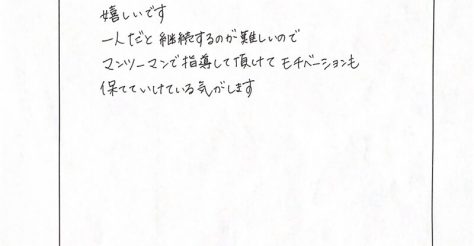 嬉しいです
一人だと継続するのが難しいので
マンツーマンで指導して頂けてモチベーションも
保てていけている気がします